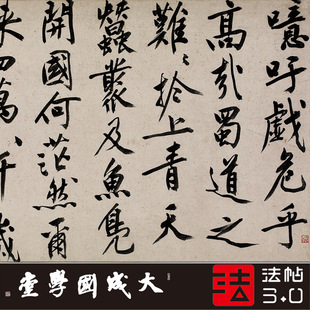 噫吁戲危乎
高哉蜀道之
難〻於上青天
蠶叢及魚鳧
開國何茫然爾
來四萬八千歲
大成國學堂
法
法帖
3.0